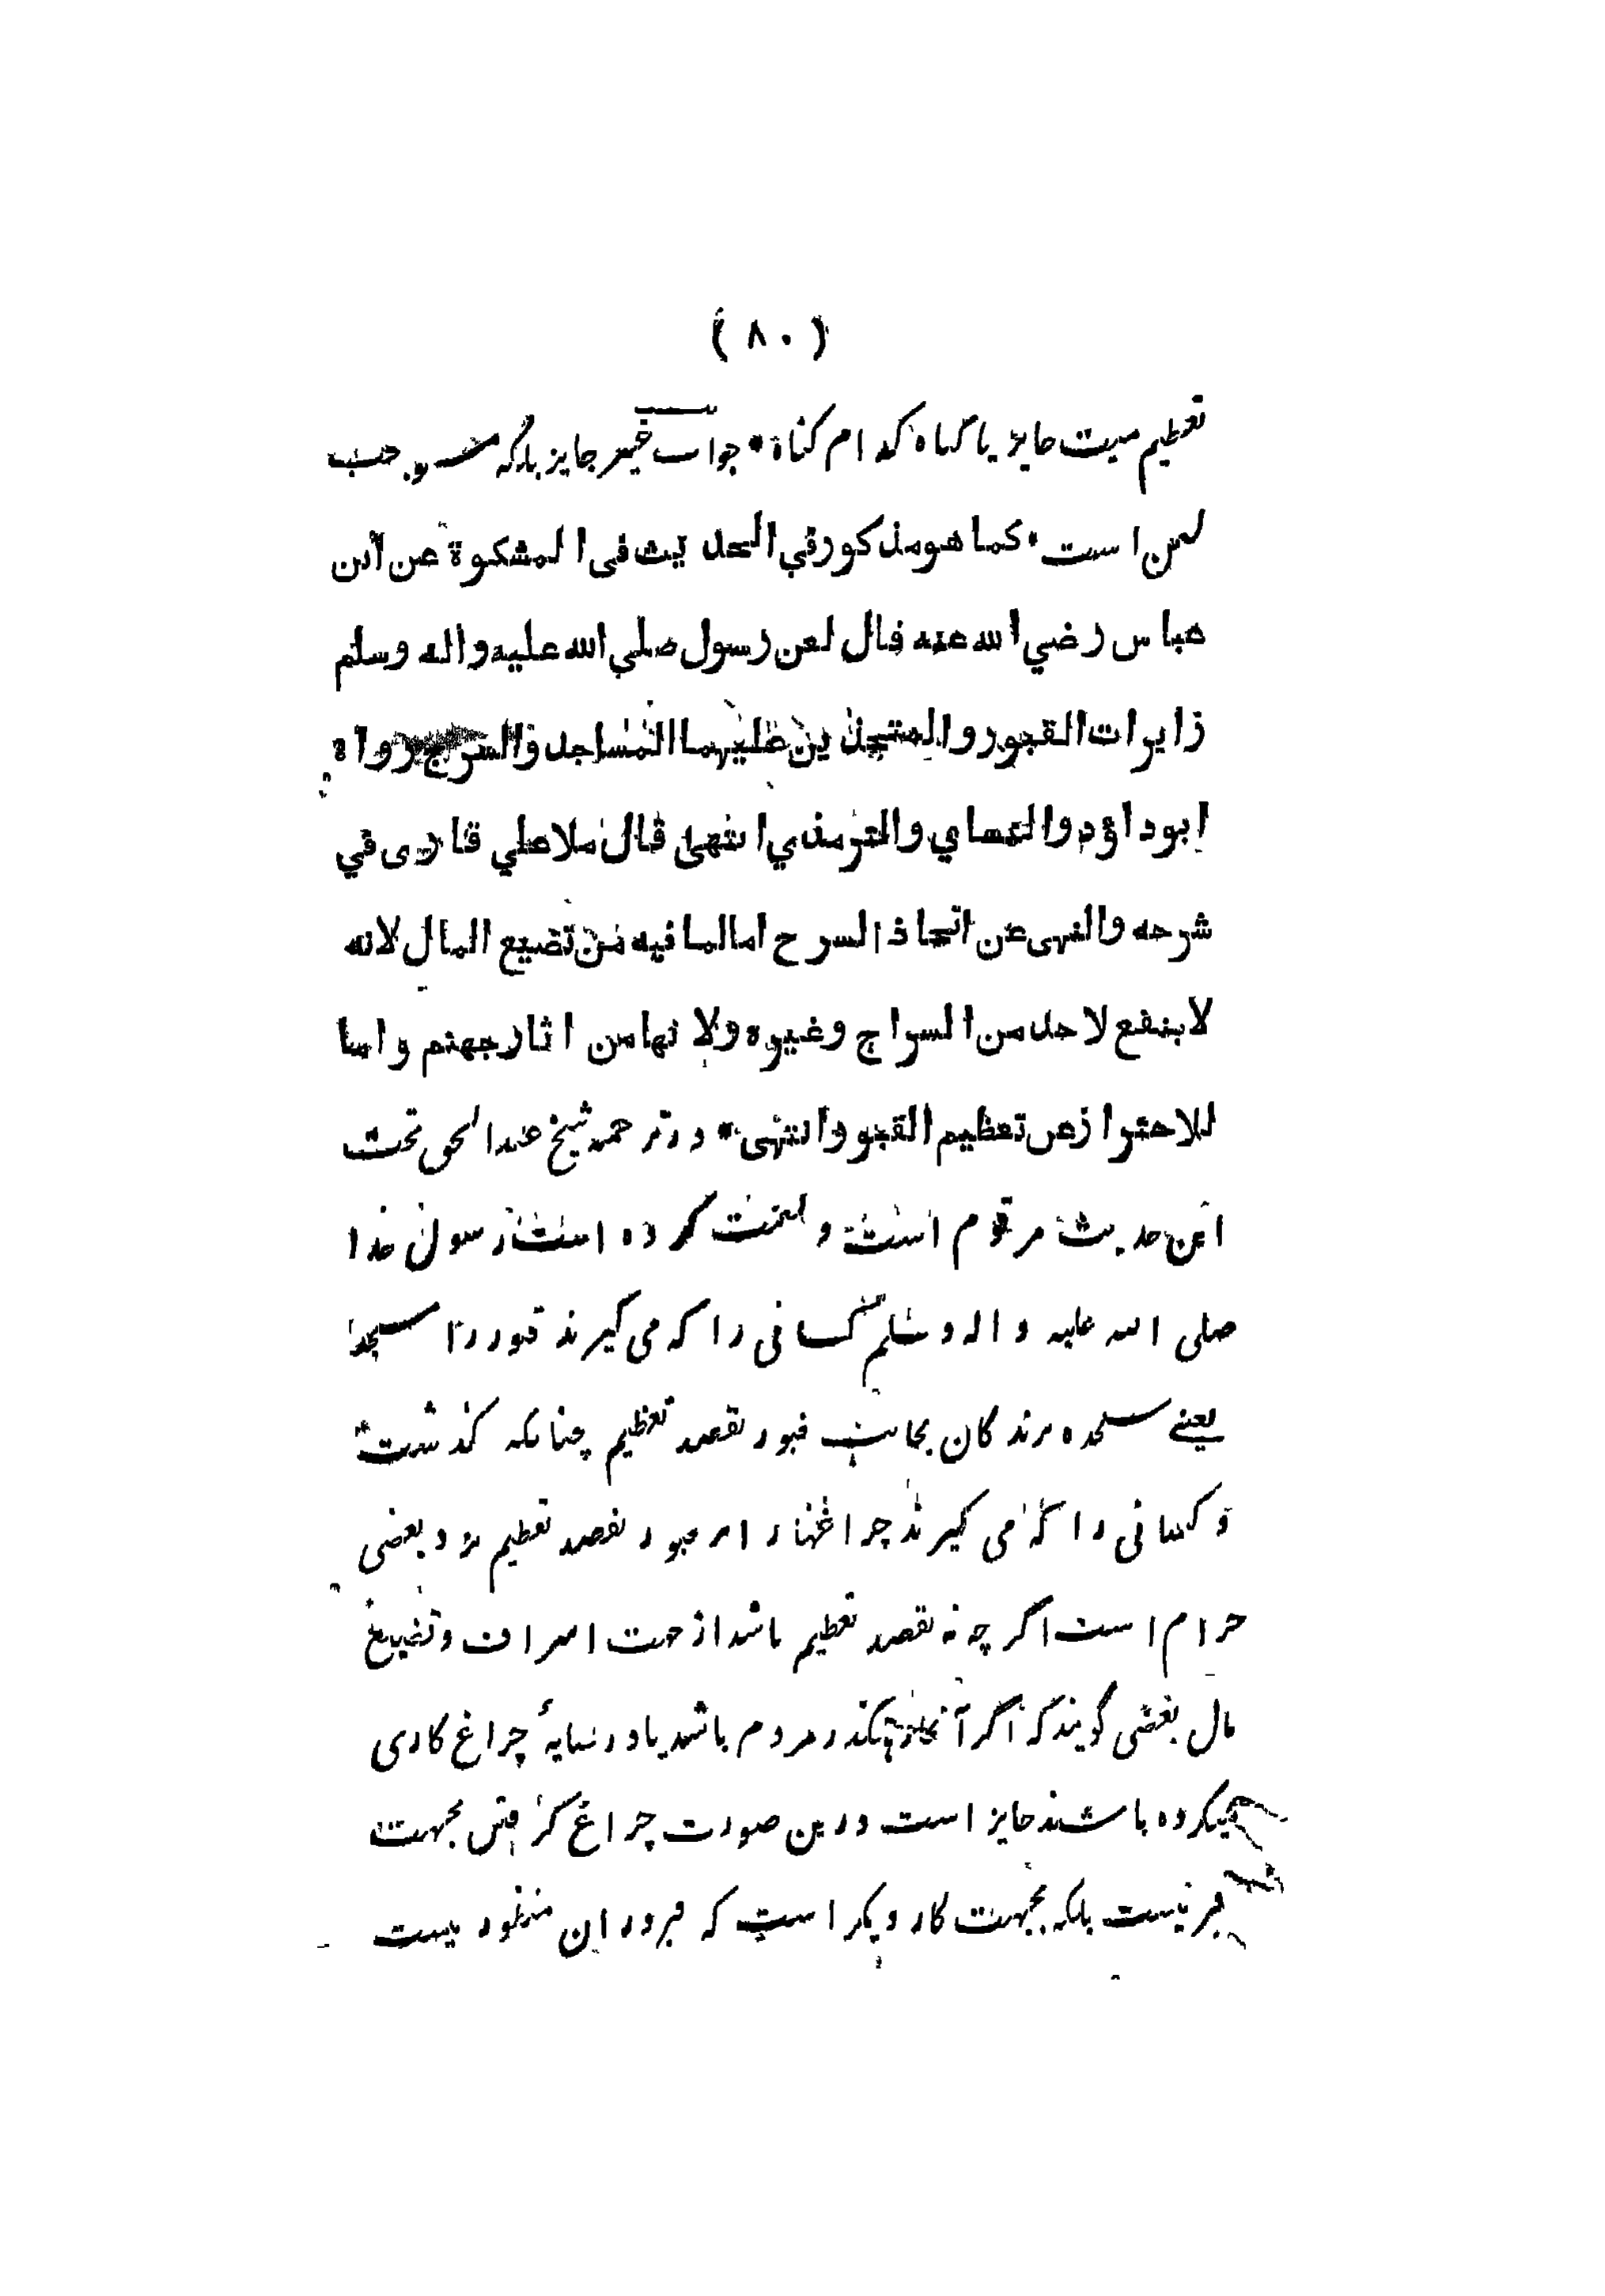 ( ٨٠ )
تعظیم میت جایز یا گناه کدام گناه * جواب غیر جایز بلکه موجب
لعن است * کما هو مذکور في الحدیث فی المشکوة عن ابن
عباس رضي الله عنه قال لعن رسول صلي الله علیه واله وسلم
زایرات القبور والمتخذین علیهما المساجد والسرج رواه
ابوداؤد والنسای والترمذي انتهی قال ملا علي قاری في
شرحه والنهی عن اتخاذ السرح اما لما فیه من تضیع المال لانه
لا ینفع لاحد من السراج وغیره ولا نها من اثار جهنم واما
للاحترازعن تعظیم القبور انتهی * ودر ترجمه شیخ عبد الحق تحت
این حدیث مرقوم است و لعنت کرده است رسول خدا
صلی الله علیه و اله و سلم کسانی را که می گیرند قبور را مسجد
یعنے سجده برندگان بجانب قبور بقصد تعظیم چنانکه گذشت
و کسانی را که می گیرند چراغها را بر قبور بقصد تعظیم نزد بعضی
حرام است اگر چه نه بقصد تعظیم باشد از جهت اسراف وتضییع
مال بعضی گویند که اگر آنجا رهگذر مردم باشد یا در سایهٔ چراغ کاری
میکرده باشند جایز است درین صورت چراغ گرفتن بجهت
قبر نیست بلکه بجهت کار دیگر است که قبر دران منظور نیست